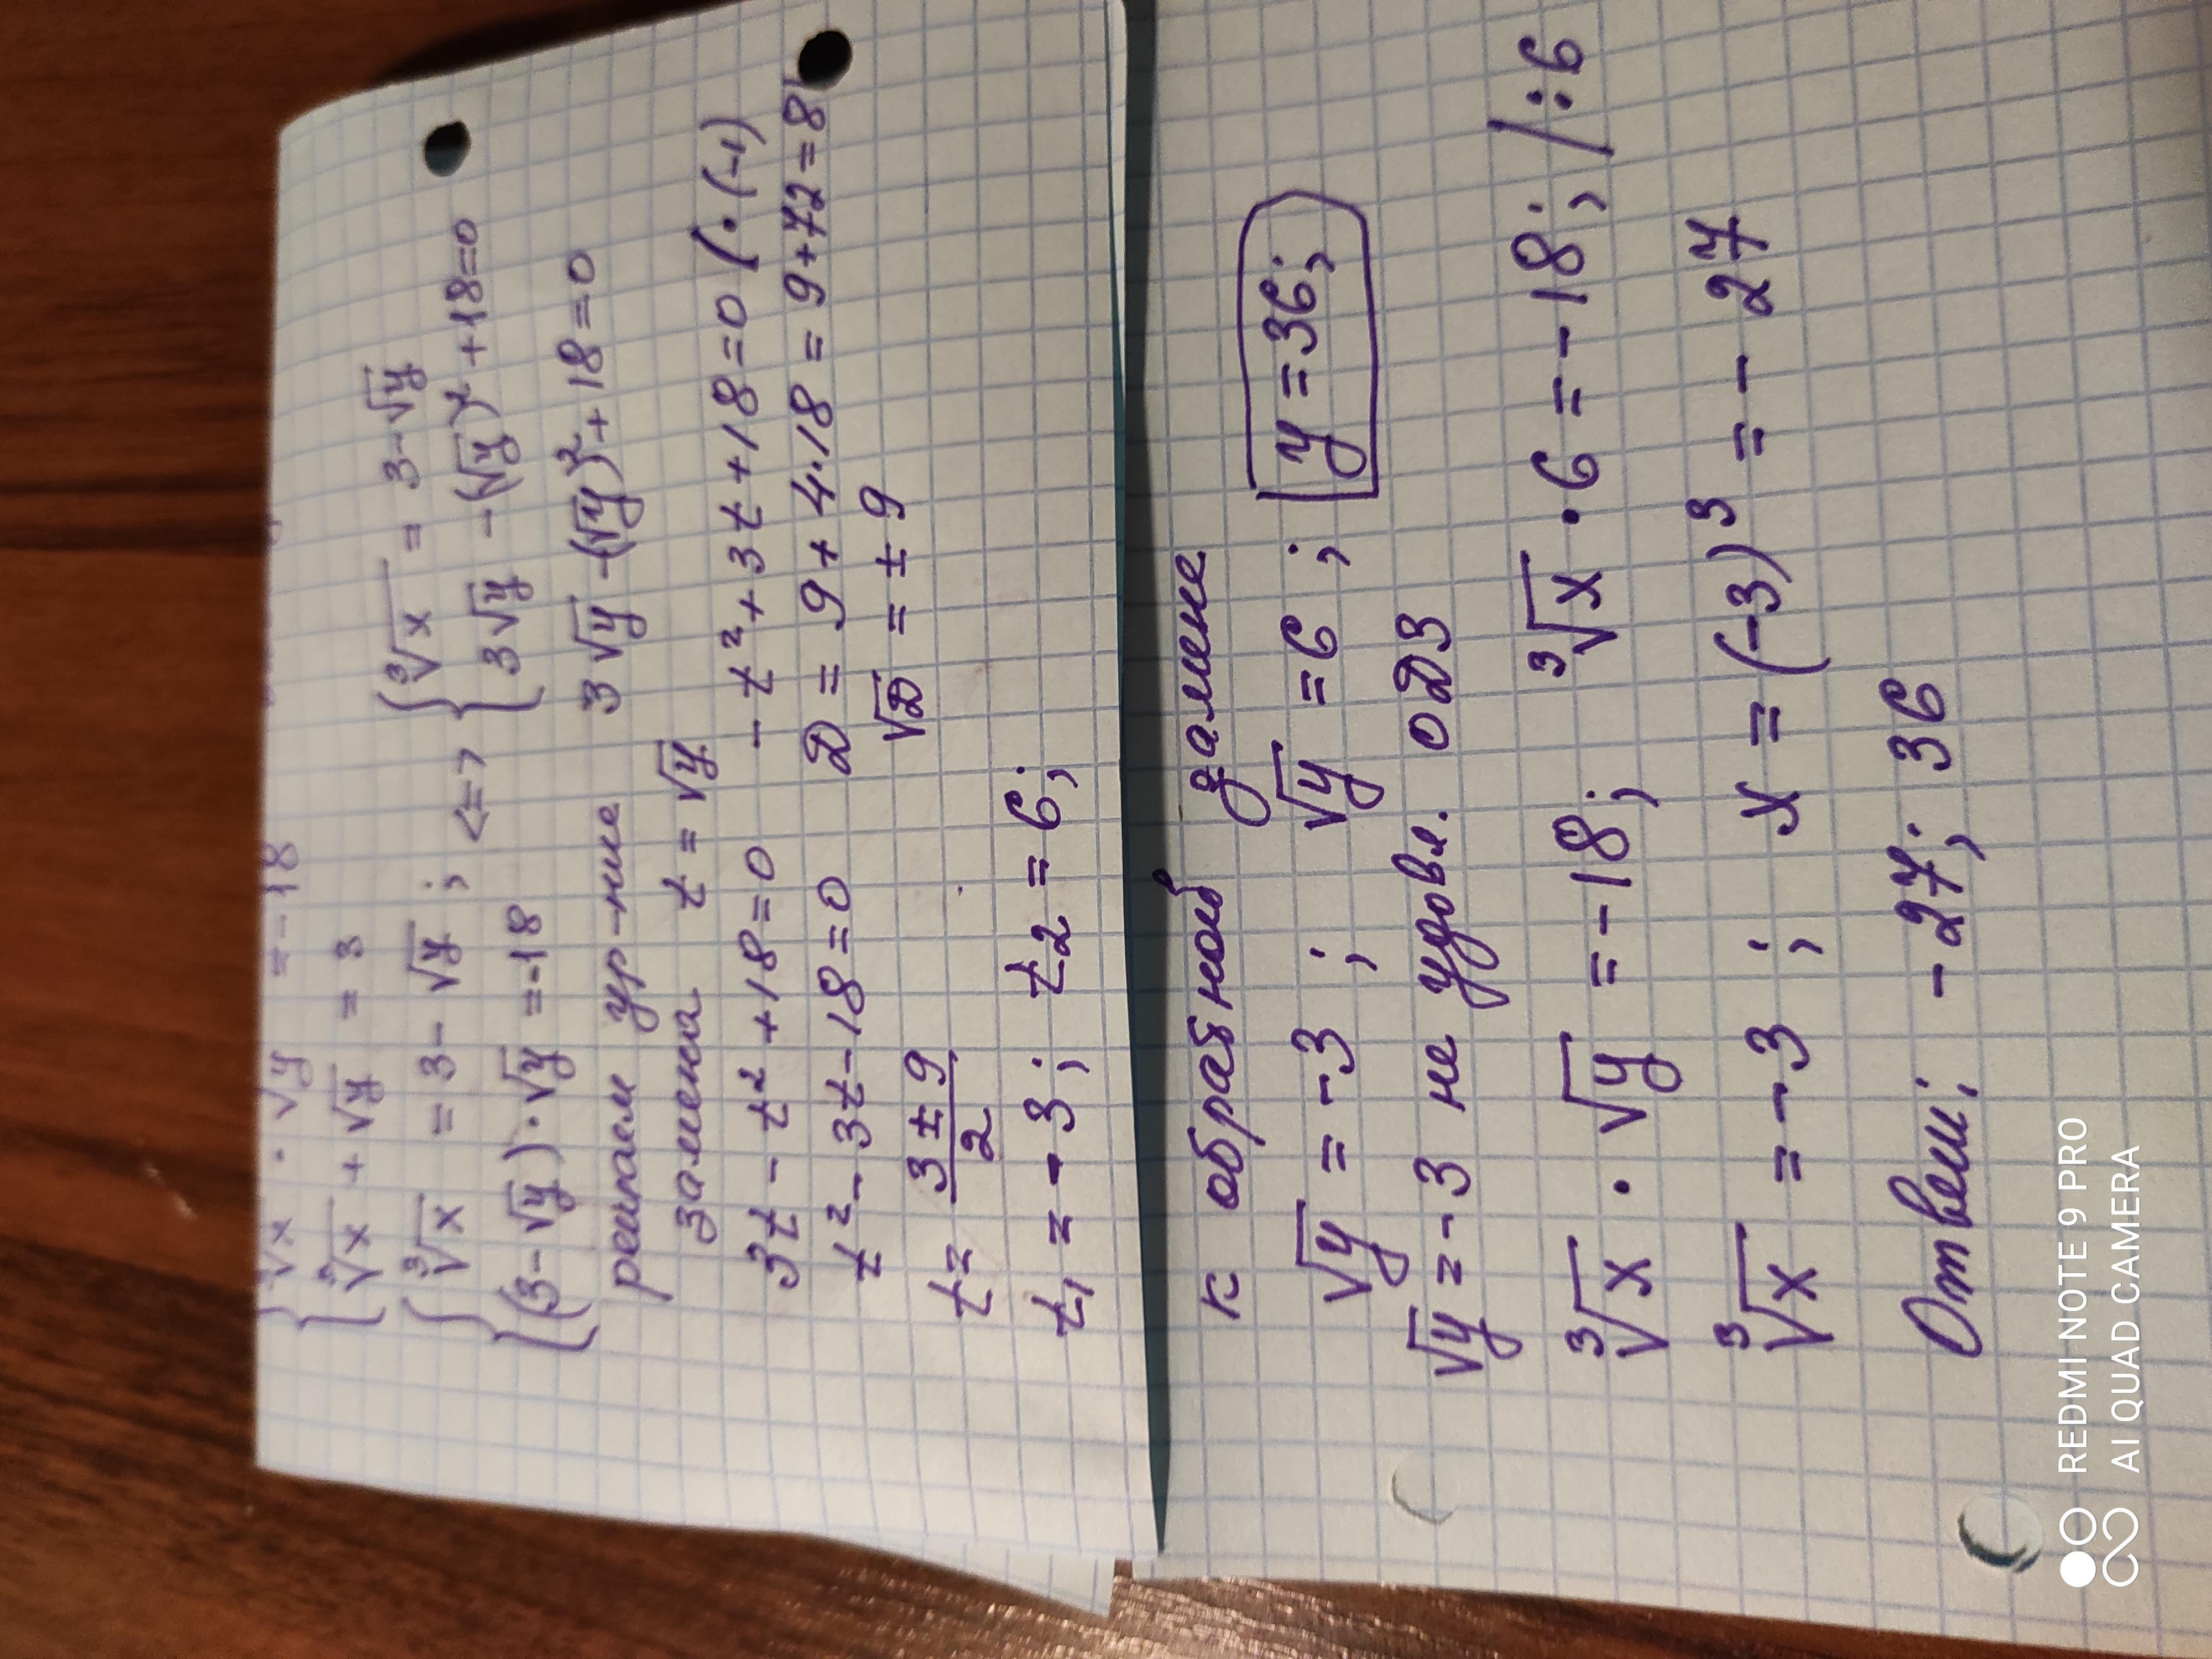 ∛x · √y = -18
{ ∛x + √y = 3
{ ∛x = 3 - √y ; <=> { ∛x = 3-√y
{ (3-√y)·√y =-18 { 3√y -(√y)² +18=0
решаем ур-ние 3√y -(√y)²+18=0
замена t = √y
3t - t² +18=0 - t²+3t+18=0 /·(-1)
t²-3t-18=0 D = 9+4·18 = 9+72=81
t= (3±9)/2 √D = ±9
t₁ = -3; t2 = 6;
к обратной замене
√y = -3 ; √y =6 ; y =36;
√y =-3 не удовл. ОДЗ
∛x · √y = -18; ∛x ·6 = -18; /:6
∛x = -3 ; x = (-3)³ = - 27
Ответ: -27; 36
REDMI NOTE 9 PRO
AI QUAD CAMERA